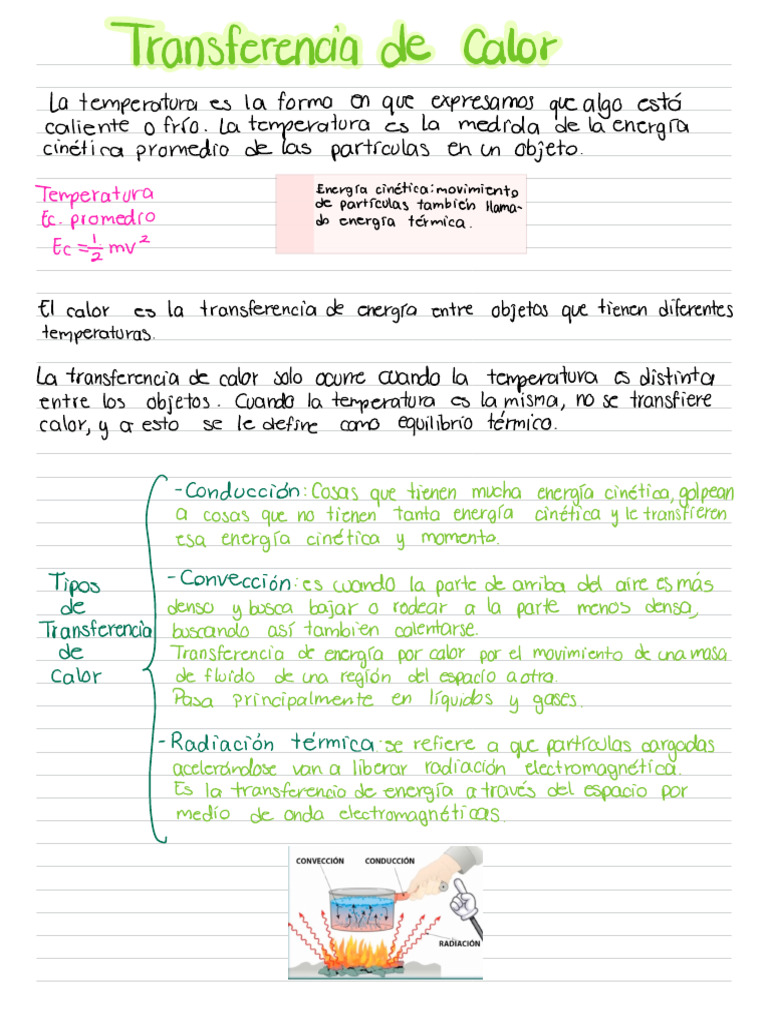 Transferencia de Calor
La temperatura es la forma en que expresamos que algo está
caliente o frío. La temperatura es la medida de la energía
cinética promedio de las partículas en un objeto.
Temperatura
Ec. promedio
Ec = 1/2 mv²
Energía cinética: movimiento
de partículas también llama-
do energía térmica.
El calor es la transferencia de energía entre objetos que tienen diferentes
temperaturas.
La transferencia de calor solo ocurre cuando la temperatura es distinta
entre los objetos. Cuando la temperatura es la misma, no se transfiere
calor, y a esto se le define como equilibrio térmico.
Tipos
de
Transferencia
de
Calor
- Conducción: Cosas que tienen mucha energía cinética, golpean
a cosas que no tienen tanta energía cinética y le transfieren
esa energía cinética y momento.
- Convección: es cuando la parte de arriba del aire es más
denso y busca bajar o rodear a la parte menos densa,
buscando así tambien calentarse.
Transferencia de energía por calor por el movimiento de una masa
de fluido de una región del espacio a otra.
Pasa principalmente en líquidos y gases.
- Radiación térmica: se refiere a que partículas cargadas
acelerándose van a liberar radiación electromagnética.
Es la transferencia de energía a través del espacio por
medio de onda electromagnéticas.
CONVECCIÓN CONDUCCIÓN
RADIACIÓN